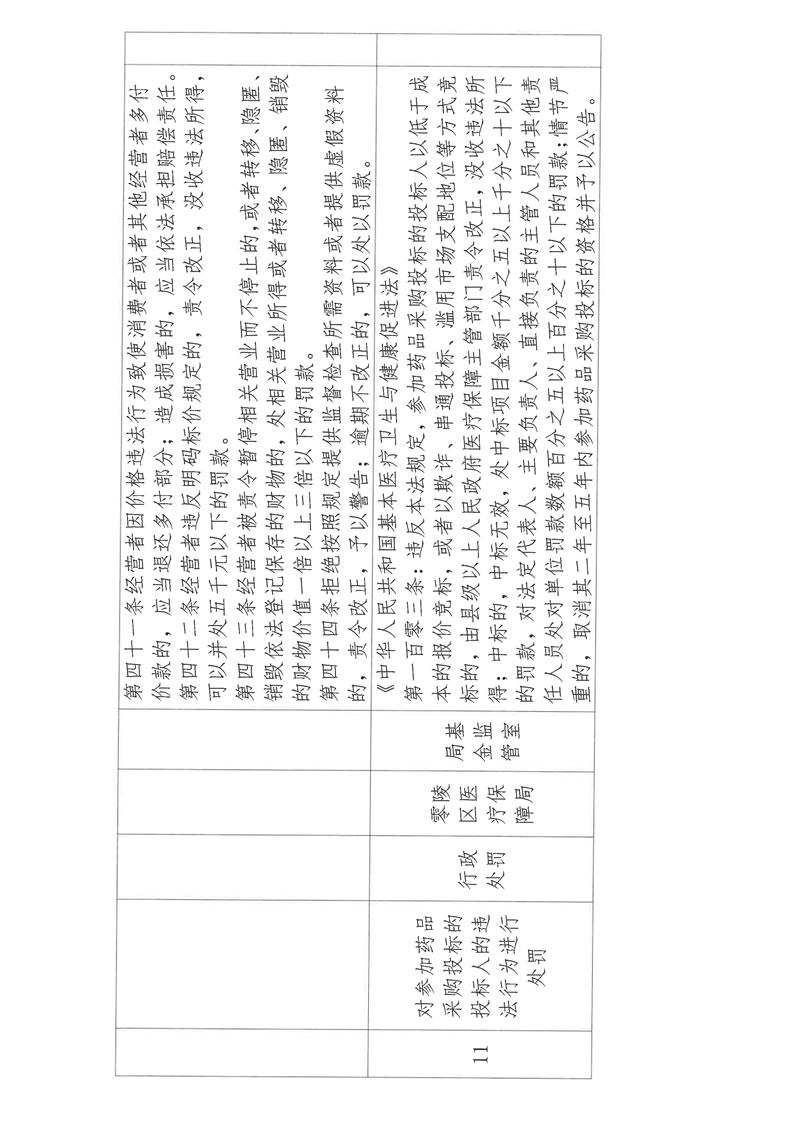 第四十一条经营者因价格违法行为致使消费者或者其他经营者多付
价款的，应当退还多付部分；造成损害的，应当依法承担赔偿责任。
第四十二条经营者违反明码标价规定的，责令改正，没收违法所得，
可以并处五千元以下的罚款。
第四十三条经营者被责令暂停相关营业而不停止的，或者转移、隐匿、
销毁依法登记保存的财物的，处相关营业所得或者转移、隐匿、销毁
的财物价值一倍以上三倍以下的罚款。
第四十四条拒绝按照规定提供监督检查所需资料或者提供虚假资料
的，责令改正，予以警告；逾期不改正的，可以处以罚款。
11
对参加药品
采购投标的
投标人的违
法行为进行
处罚
行政
处罚
零陵
区医
疗保
障局
局基
金监
管室
《中华人民共和国基本医疗卫生与健康促进法》
第一百零三条：违反本法规定，参加药品采购投标的投标人以低于成
本的报价竞标，或者以欺诈、串通投标、滥用市场支配地位等方式竞
标的，由县级以上人民政府医疗保障主管部门责令改正，没收违法所
得；中标的，中标无效，处中标项目金额千分之五以上千分之十以下
的罚款，对法定代表人、主要负责人、直接负责的主管人员和其他责
任人员处对单位罚款数额百分之五以上百分之十以下的罚款；情节严
重的，取消其二年至五年内参加药品采购投标的资格并予以公告。